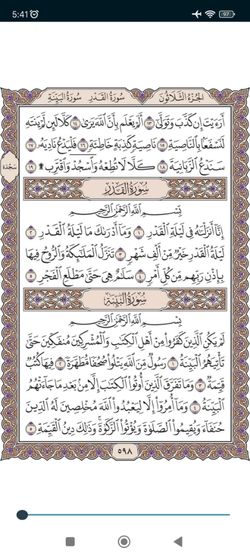 5:41
97
الجزء الثلاثون
سورة القدر
سورة البينة
أَرَءَيْتَ إِن كَذَّبَ وَتَوَلَّىٰٓ ١٣ أَلَمْ يَعْلَم بِأَنَّ ٱللَّهَ يَرَىٰ ١٤ كَلَّا لَئِن لَّمْ يَنتَهِ
لَنَسْفَعًۢا بِٱلنَّاصِيَةِ ١٥ نَاصِيَةٍ كَٰذِبَةٍ خَاطِئَةٍ ١٦ فَلْيَدْعُ نَادِيَهُۥ ١٧
سَنَدْعُ ٱلزَّبَانِيَةَ ١٨ كَلَّا لَا تُطِعْهُ وَٱسْجُدْ وَٱقْتَرِب ۩ ١٩
سجدة
سورة القدر
بِسْمِ ٱللَّهِ ٱلرَّحْمَٰنِ ٱلرَّحِيمِ
إِنَّآ أَنزَلْنَٰهُ فِى لَيْلَةِ ٱلْقَدْرِ ١ وَمَآ أَدْرَىٰكَ مَا لَيْلَةُ ٱلْقَدْرِ ٢
لَيْلَةُ ٱلْقَدْرِ خَيْرٌ مِّنْ أَلْفِ شَهْرٍ ٣ تَنَزَّلُ ٱلْمَلَٰٓئِكَةُ وَٱلرُّوحُ فِيهَا
بِإِذْنِ رَبِّهِم مِّن كُلِّ أَمْرٍ ٤ سَلَٰمٌ هِىَ حَتَّىٰ مَطْلَعِ ٱلْفَجْرِ ٥
سورة البينة
بِسْمِ ٱللَّهِ ٱلرَّحْمَٰنِ ٱلرَّحِيمِ
لَمْ يَكُنِ ٱلَّذِينَ كَفَرُوا۟ مِنْ أَهْلِ ٱلْكِتَٰبِ وَٱلْمُشْرِكِينَ مُنفَكِّينَ حَتَّىٰ
تَأْتِيَهُمُ ٱلْبَيِّنَةُ ١ رَسُولٌ مِّنَ ٱللَّهِ يَتْلُوا۟ صُحُفًا مُّطَهَّرَةً ٢ فِيهَا كُتُبٌ
قَيِّمَةٌ ٣ وَمَا تَفَرَّقَ ٱلَّذِينَ أُوتُوا۟ ٱلْكِتَٰبَ إِلَّا مِنۢ بَعْدِ مَا جَآءَتْهُمُ
ٱلْبَيِّنَةُ ٤ وَمَآ أُمِرُوٓا۟ إِلَّا لِيَعْبُدُوا۟ ٱللَّهَ مُخْلِصِينَ لَهُ ٱلدِّينَ
حُنَفَآءَ وَيُقِيمُوا۟ ٱلصَّلَوٰةَ وَيُؤْتُوا۟ ٱلزَّكَوٰةَ وَذَٰلِكَ دِينُ ٱلْقَيِّمَةِ ٥
٥٩٨